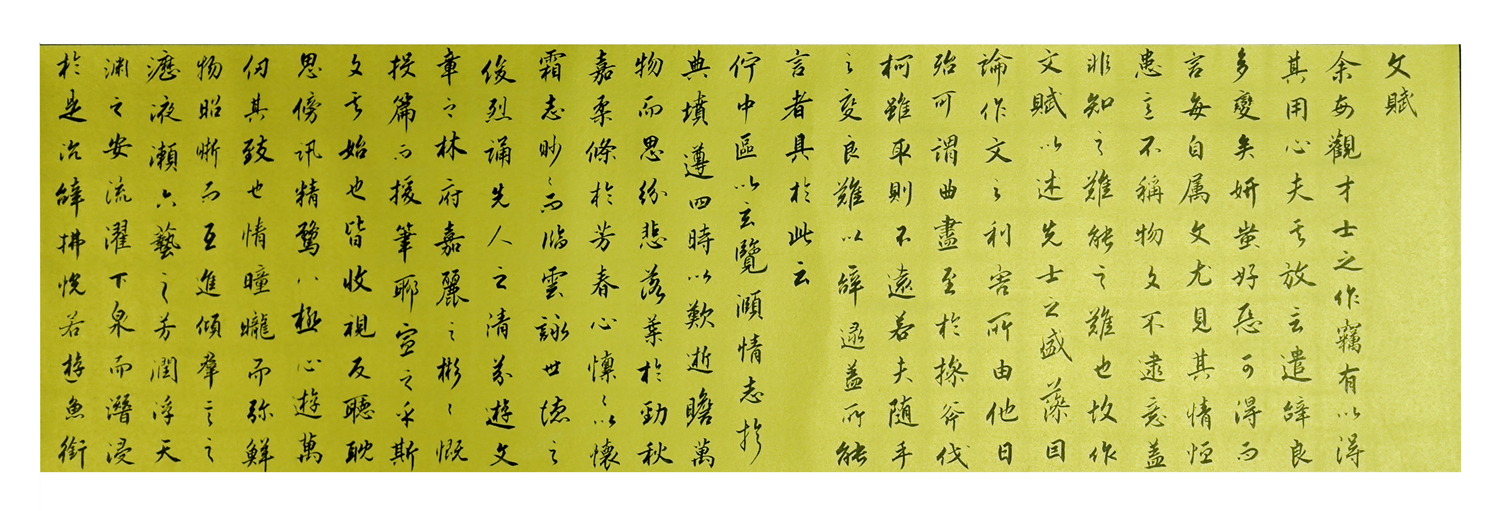 文賦
余每觀才士之作竊有以得
其用心夫其放言遣辭良
多變矣妍蚩好惡可得而
言每自属文尤見其情恒
患意不稱物文不逮意盖
非知之難能之難也故作
文賦以述先士之盛藻因
論作文之利害所由他日
殆可謂曲盡至於操斧伐
柯雖取則不遠若夫随手
之變良難以辭逮盖所能
言者具於此云
佇中區以玄覽頤情志於
典墳遵四時以歎逝瞻萬
物而思紛悲落葉於勁秋
嘉柔條於芳春心懍々以懷
霜志眇々而臨雲詠世徳之
俊烈誦先人之清芬遊文
章之林府嘉麗之彬々慨
投篇而援筆聊宣之乎斯
文其始也皆收視反聽耽
思傍訊精騖八極心遊萬
仞其致也情曈曨而弥鮮
物昭晣而互進傾群言之
瀝液漱六藝之芳潤浮天
淵之安流濯下泉而潛浸
於是沉辭怫悅若遊魚銜